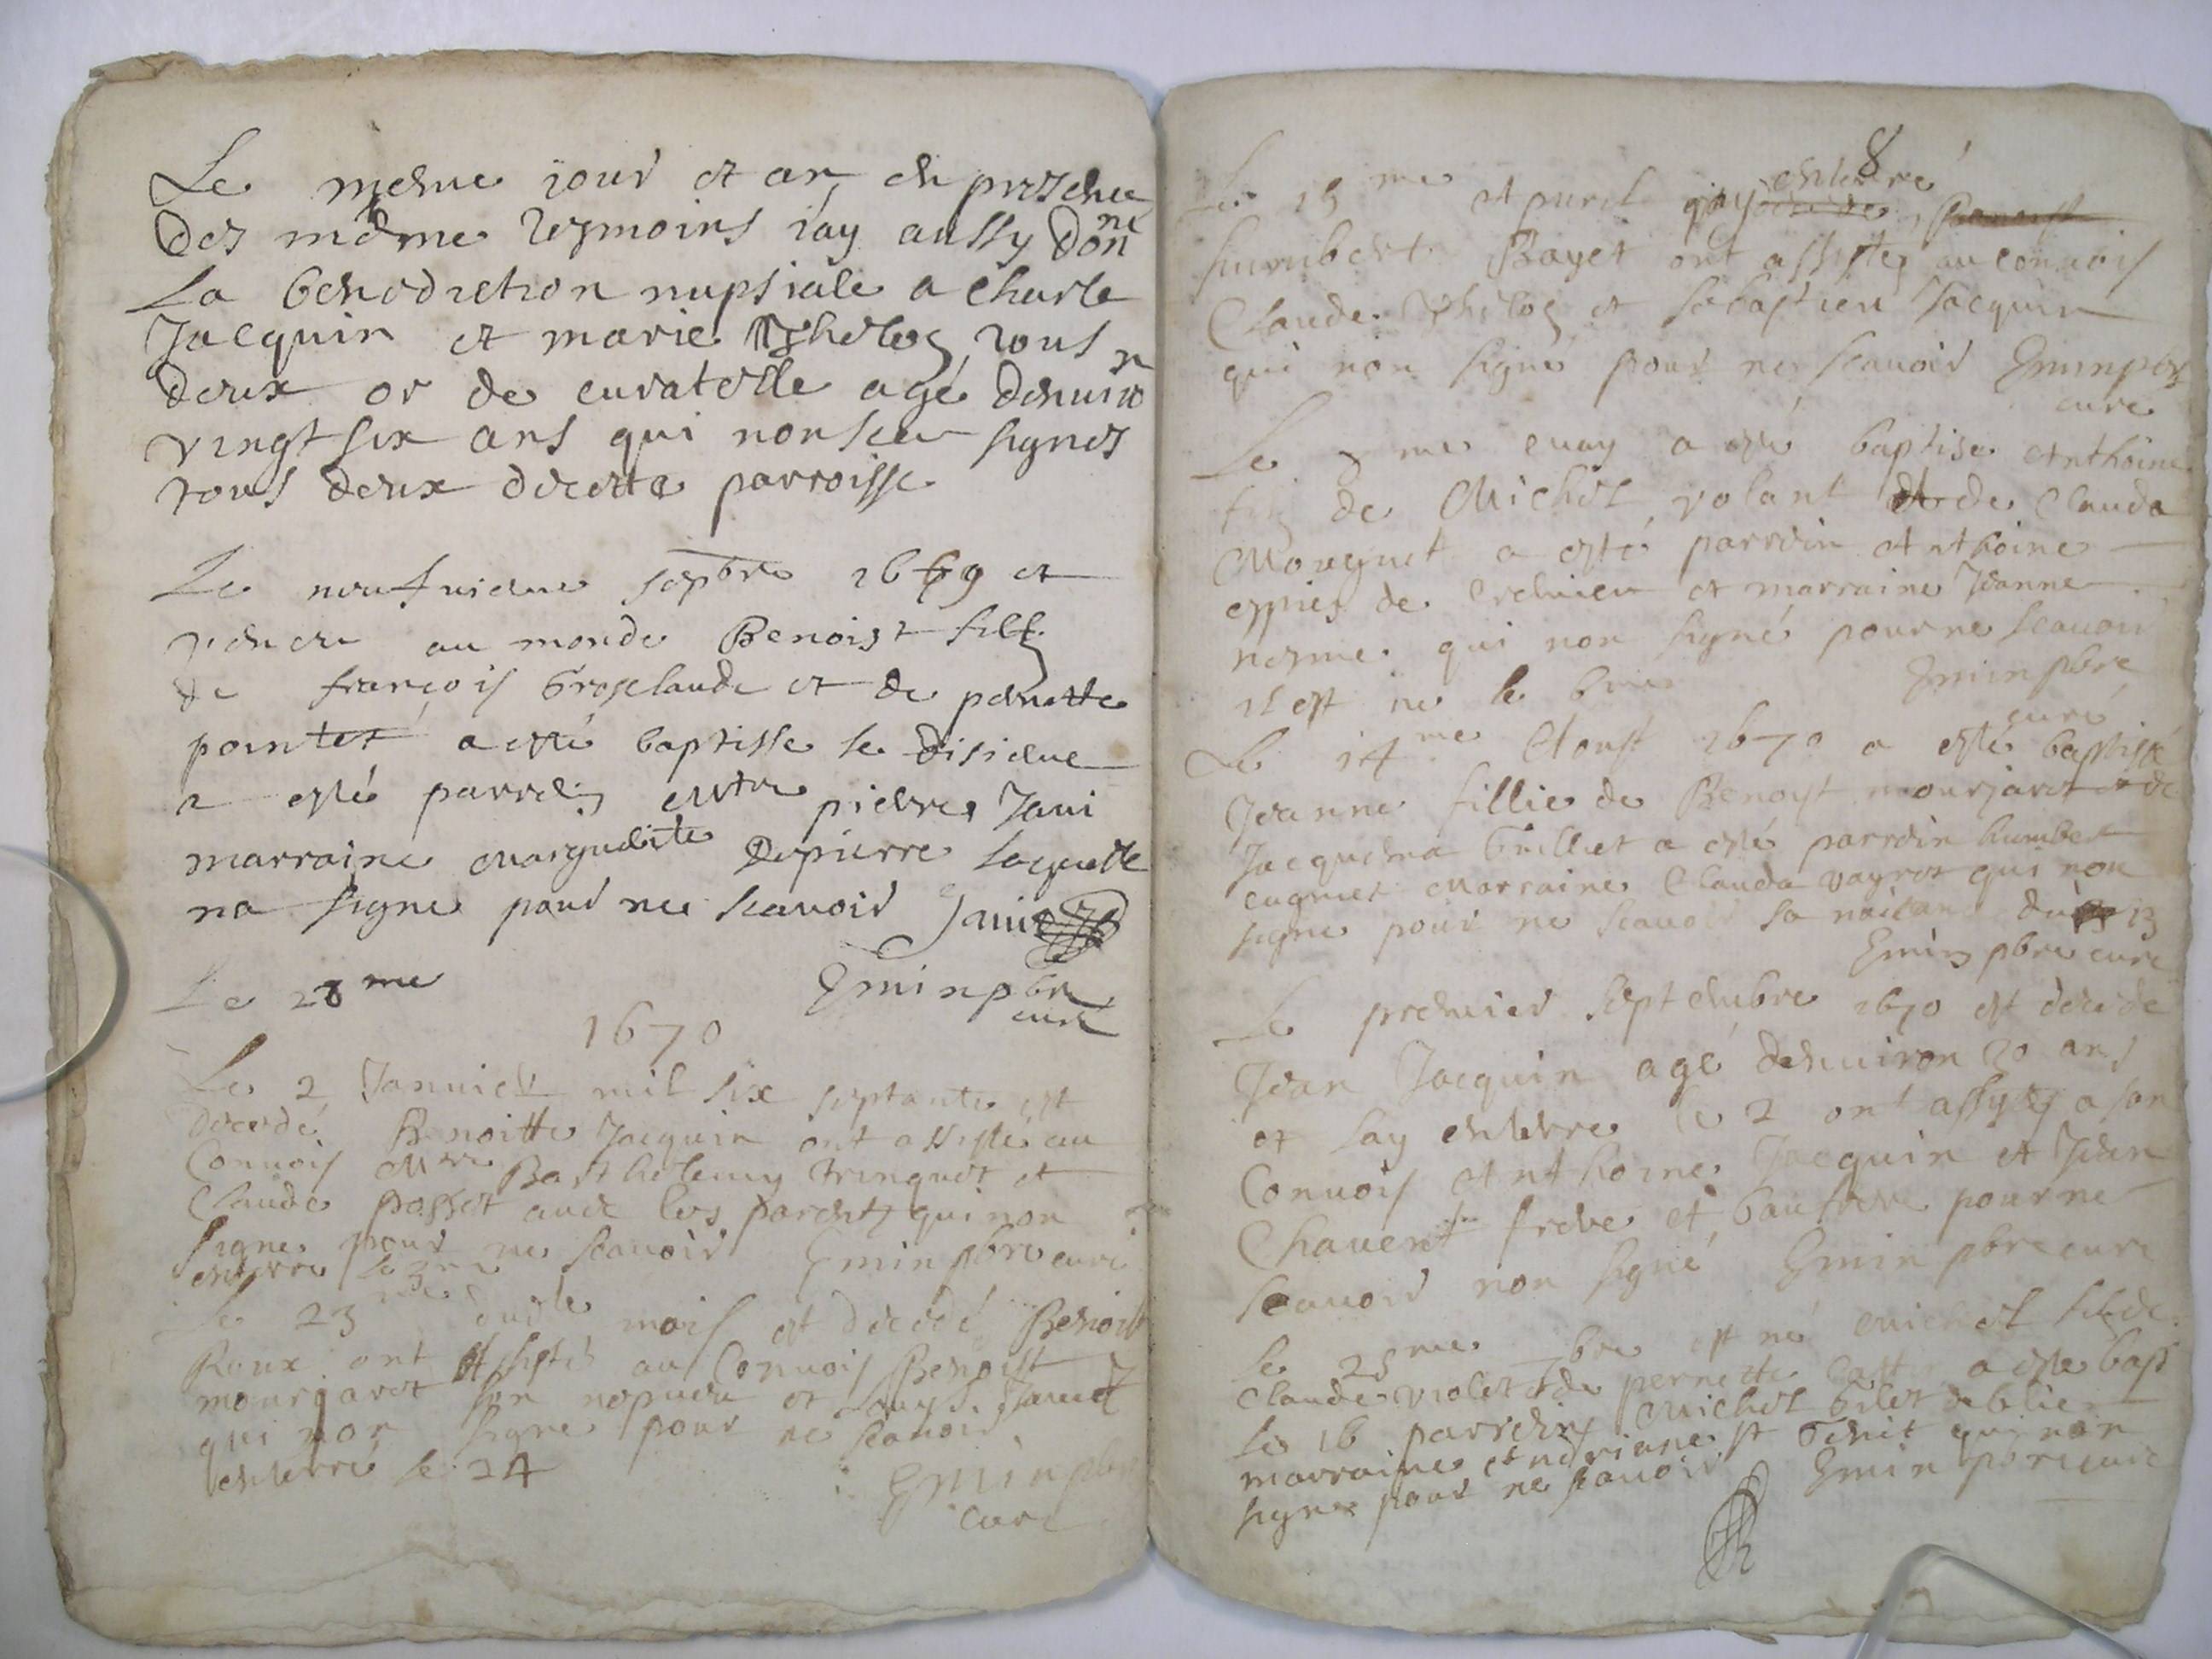 Le mesme jour et an en presence
des mesme tesmoins jay aussy donné
La benediction nupsiale a Charle
Jacquin et marie Theloz tous
deux or de curatelle agé denviron
vingt six ans qui non sceu signer
tous deux decette parroisse
Le neufviesme sepbre 1669 et
veneu au monde Benoist filz
de françois Grosclaude et de pernette
pointet a esté baptisse le disiesme
a esté parrein Mtre pierre Jani
marraine marguerite Depierre laquelle
na signe pour ne scavoir Janin
Emin pbre
Le 28me
curé
1670
Le 2 Janvier mil six septante est
decedé Benoitte Jacquin ont assisté au
Convois Mtre Barthelemy trinquet et
Claude possot avec les parents qui non
signe pour ne scavoir Emin pbre curé
enterre le 3me
Le 23me dudt mois est decedé Benoist
Roux ont Assistés au Convois Benoist
mourjarot son nepveu et Louys Janet
qui non signe pour ne scavoir
enterré le 24
Emin pbre
Curé
8
Le 15me Apvril jay enterré
humbert Bayet ont assistés au convois
Claude Theloz et sebastien Jacquin
qui non signé pour ne scavoir Emin pbre
curé
Le me may a esté baptise Anthoine
filz de Michel volant et de Clauda
Mouynet a esté parrein Anthoine
espies de Cremieu et marraine Jeanne
nesme qui non signé pour ne scavoir
il est ne le 6me Emin pbre
curé
Le 14me Aoust 1670 a esté baptisse
Jeanne fillie de Benoyst mourjarot et de
Jacquema Grilliet a esté parrein humbert
cugniet Marraine Clauda vayrot qui non
signe pour ne scavoir sa naisance du 13
Emin pbre curé
Le premier Septembre 1670 est decede
Jean Jacquin agé denviron 20 ans
et lay enterre le 2 ont assystez a son
Convois Anthoine Jacquin et Jean
Chavent son frere et beaufrere pour ne
scavoir non signé Emin pbre curé
Le 25me 7bre est né Michel fils de
Claude violet et de pernette a esté bap
le 16 parrein Michel Gilet de blie
marraine Andriane st Genit qui non
signe pour ne scavoir Emin pbre curé